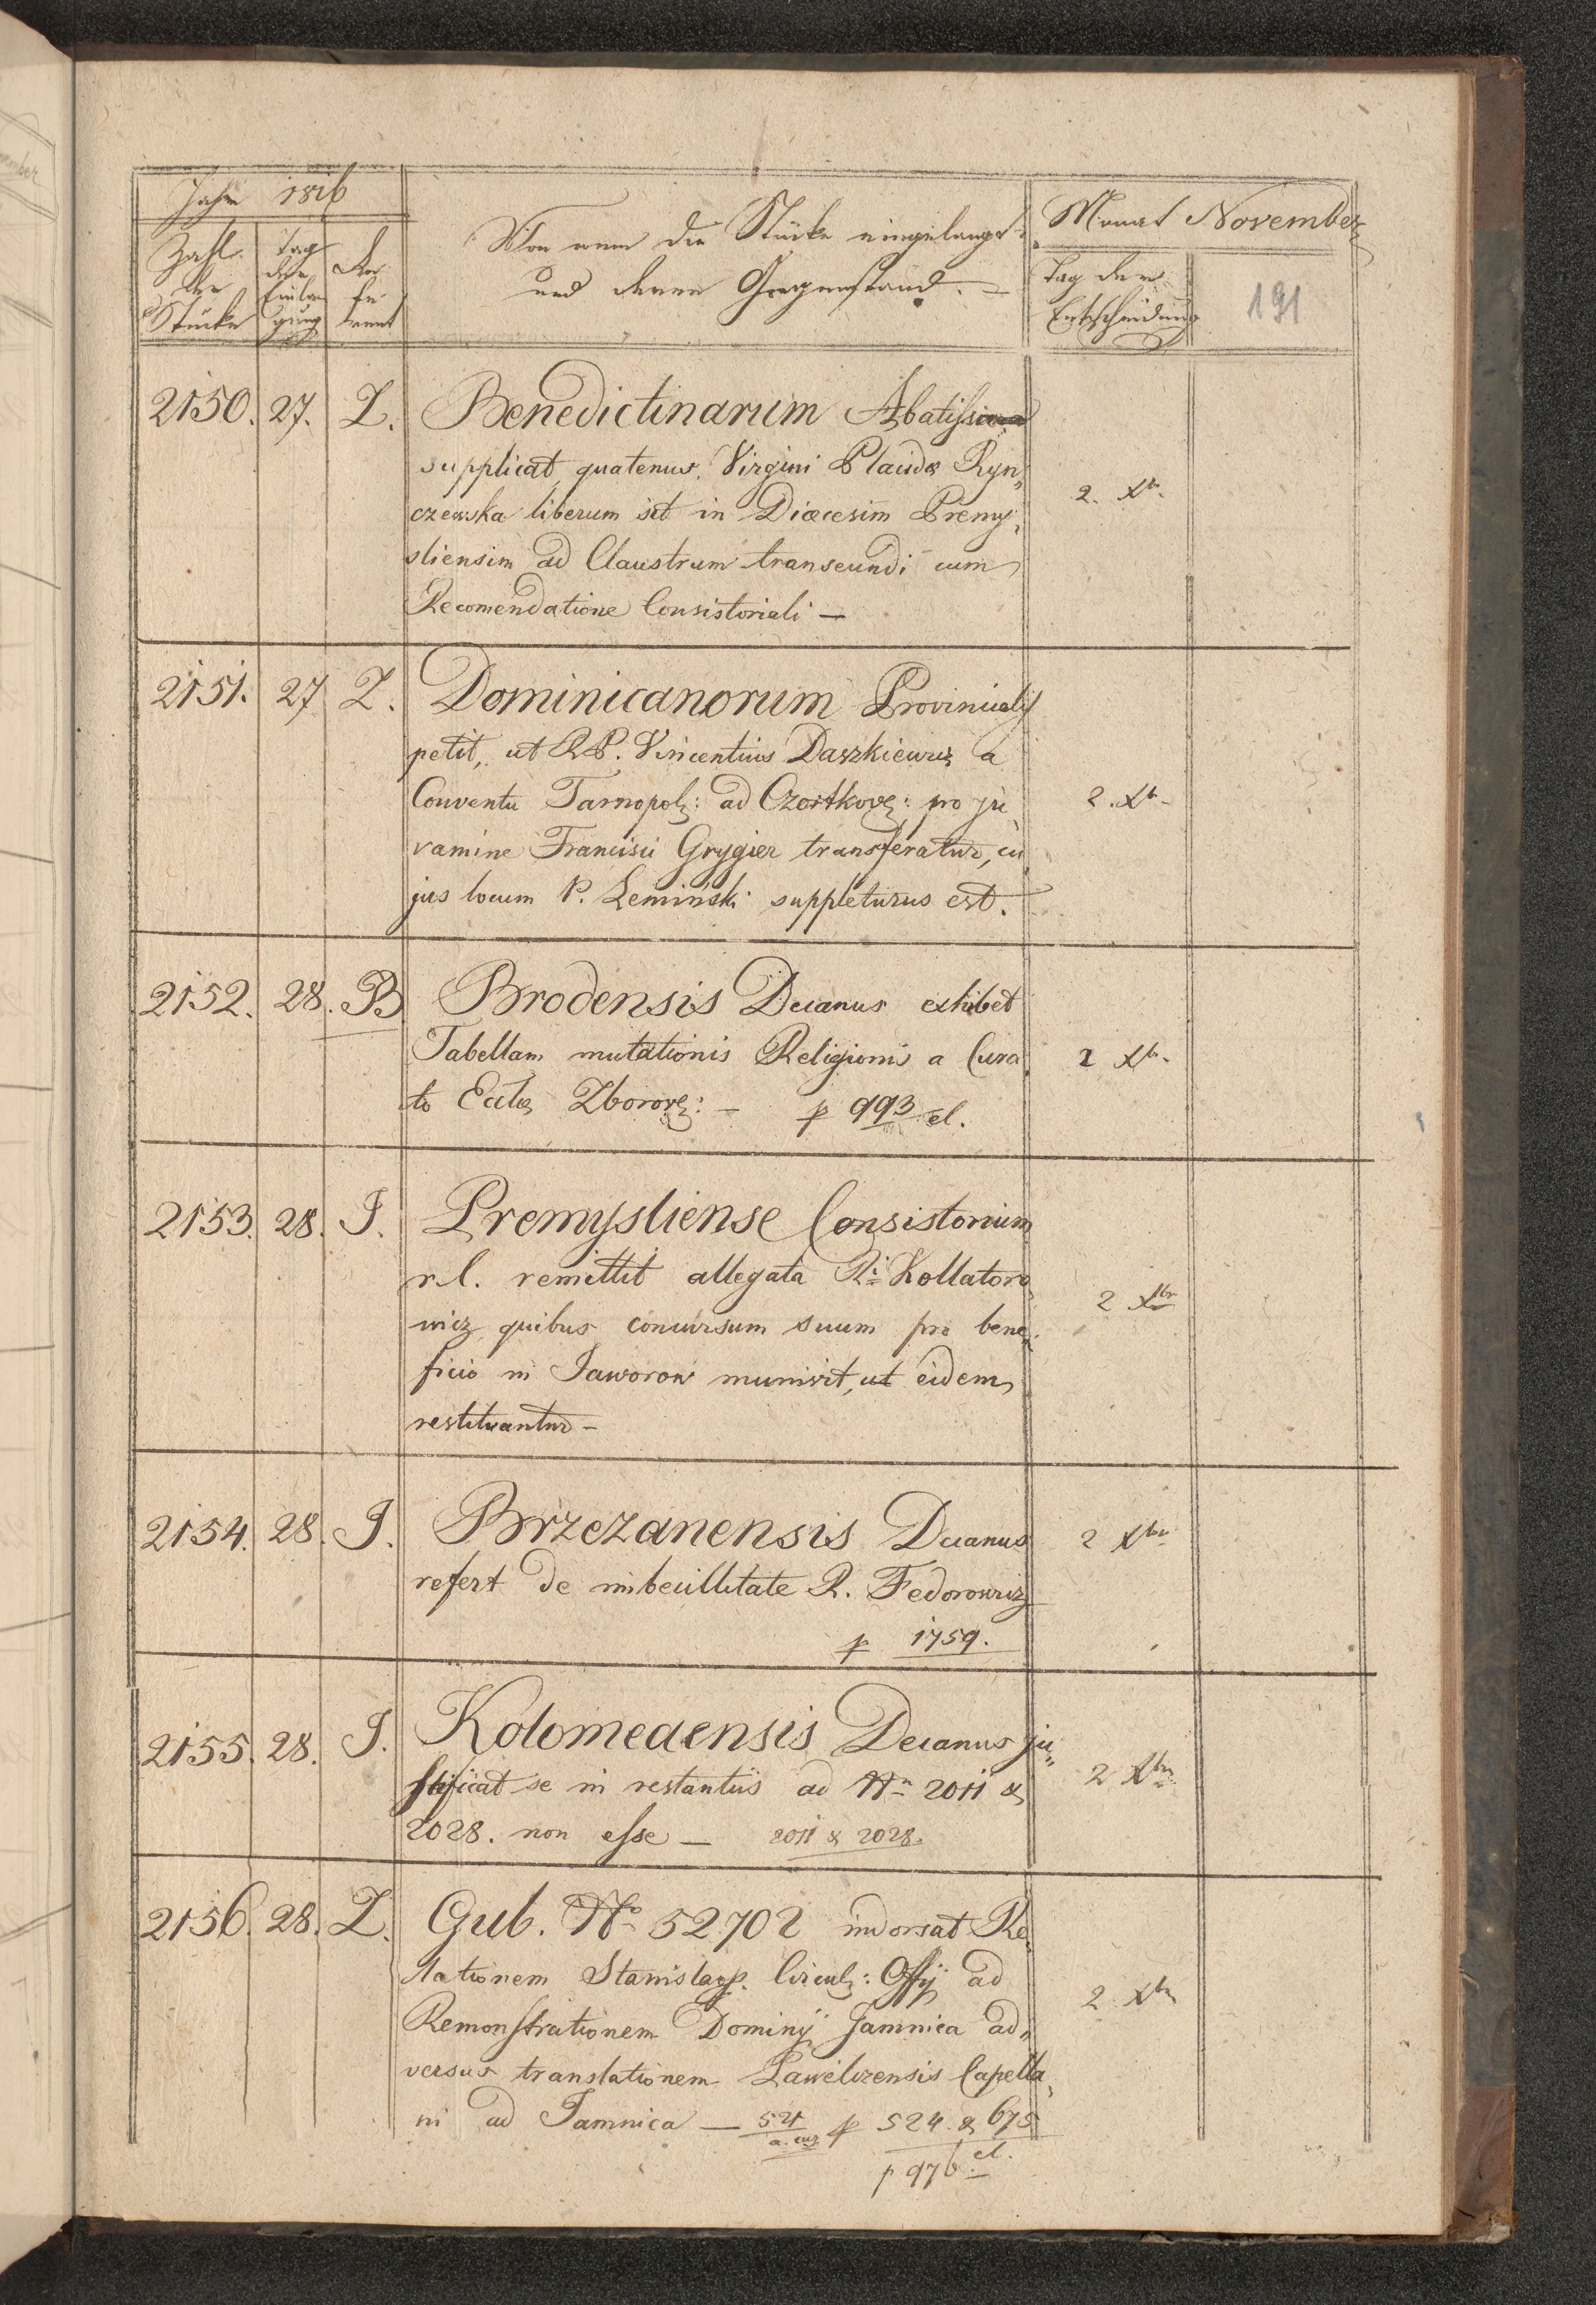 Jahr 1816
Zahl der Stücke
Tag deren Einlangung
Referent
Von wem die Stücke eingelangt
und deren Gegenstand. —
Monat November
Tag der Entscheidung
191
2150. 27. Z. Benedictinarum Abatissa
supplicat, quatenus Virgini Placidæ Ryn„
czewska liberum sit in Diœcesim Premy„
sliensim ad Claustrum transeundi cum
Recomendatione Consistoriali —
2. Xbr.
2151. 27 Z. Dominicanorum Provincialis
petit, ut R.P. Vincentius Daszkiewicz a
Conventu Tarnopol: ad Czortkov: pro ju„
vamine Francisci Grygier transferatur, cu„
jus locum P. Lemiński suppleturus est.
2. Xbr.
2152. 28. B Brodensis Decanus exhibet
Tabellam mutationis Religionis a Cura„
to Eccl Zborov: — p 993 el.
2 Xbr.
2153. 28. J. Premysliense Consistorium
r. l. remittit allegata Ri Kollatoro„
wicz, quibus concursum suum pro bene„
ficio in Jaworow munivit, ut eidem
restituantur —
2 Xbr
2154. 28. J. Brzezanensis Decanus
refert de imbecillitate R. Fedorowicz
p 1759.
2 Xbr
2155. 28. J. Kolomeaensis Decanus ju„
stificat se in restantiis ad Nr 2011 &
2028. non esse — 2011 & 2028.
2 Xbr
2156. 28. Z. Gub. No 52702 indorsat Re„
lationem Stanislaop. Circul: Offij ad
Remonstrationem Dominij Jamnica ad„
versus translationem Pawelczensis Capella„
ni ad Jamnica — 521 p 524 & 675
p 976 el.
2 Xbr